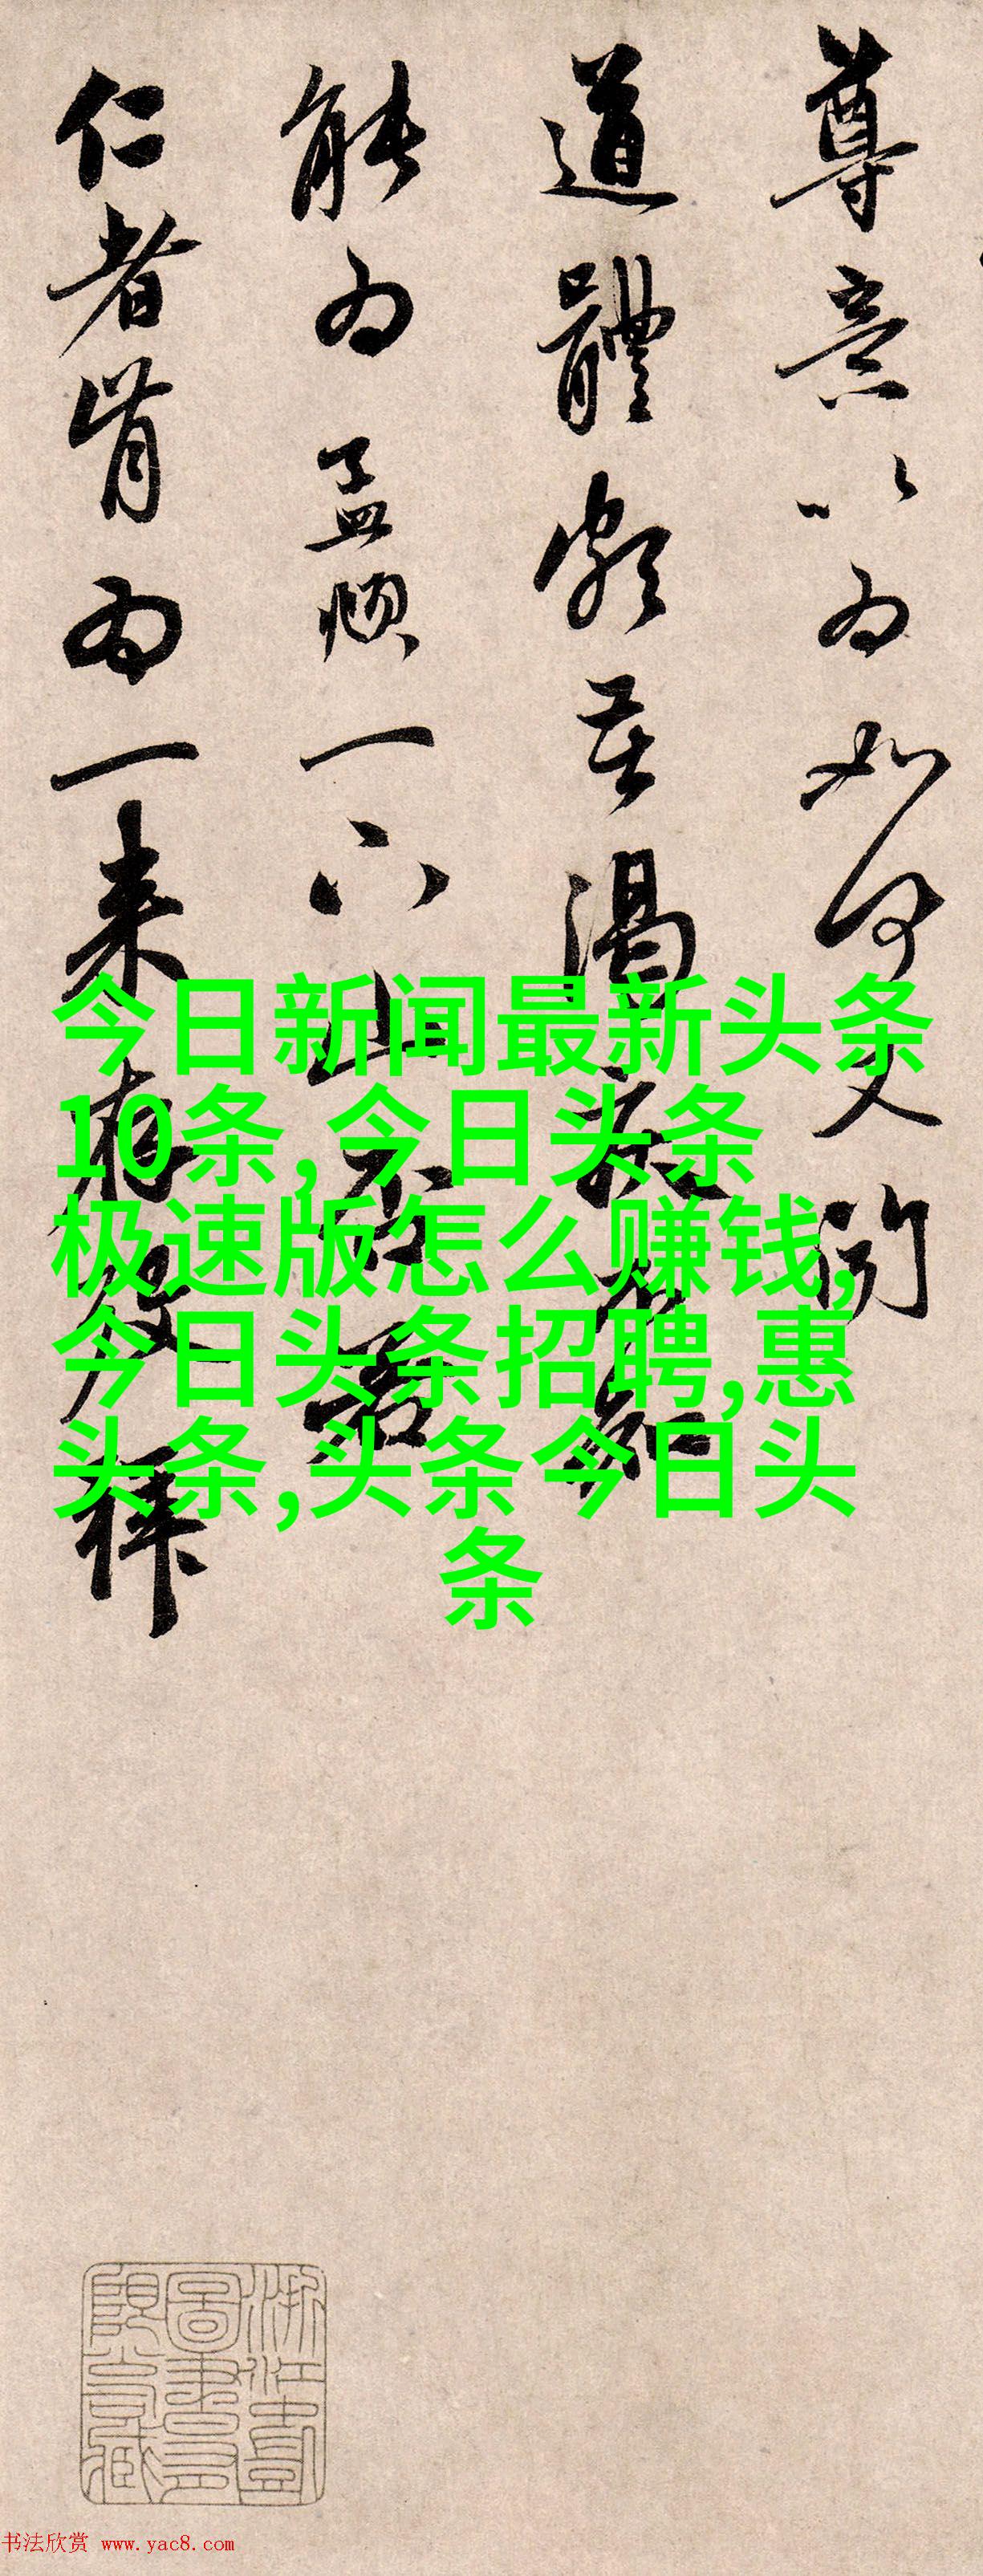 尊意以為如何又聞
道體頗苦渴疾不知
能為孟頫一下山否若
仁者肯為一來存歿拜
今日新闻最新头条
10条,今日头条
极速版怎么赚钱,
今日头条招聘,惠
头条,头条今日头
条
书法欣赏 www.yac8.com